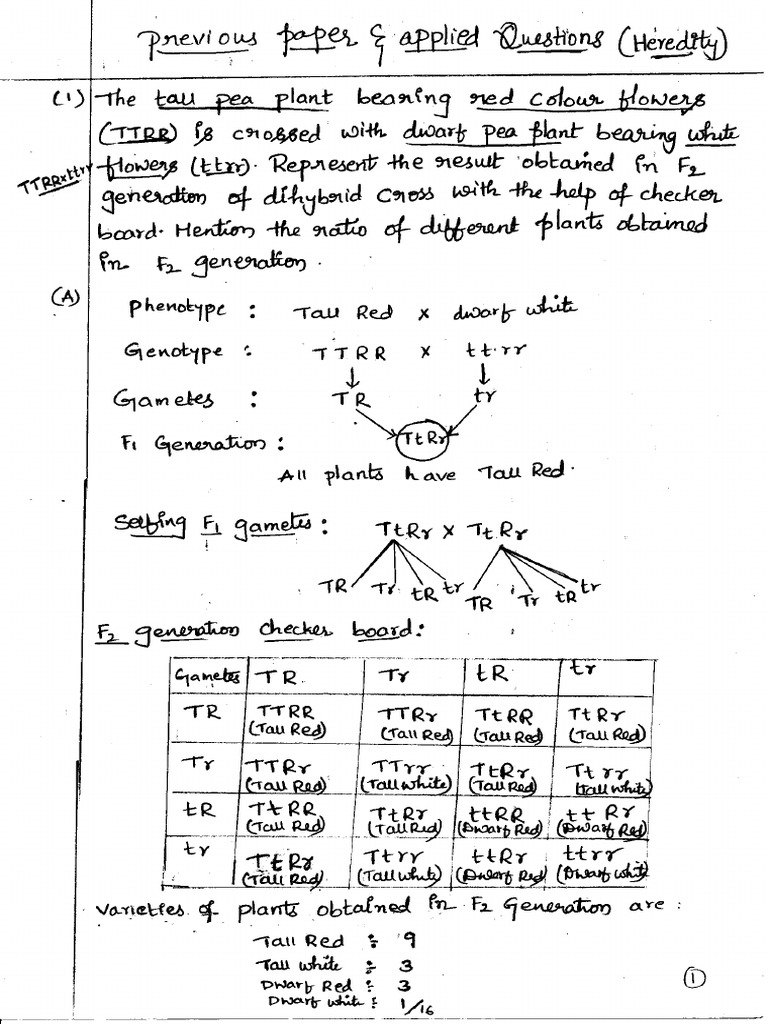 Previous paper & applied Questions (Heredity)
(1) The tall pea plant bearing red colour flowers
(TTRR) is crossed with dwarf pea plant bearing white
TTRR×ttrr flowers (ttrr). Represent the result obtained in F2
generation of dihybrid cross with the help of checker
board. Mention the ratio of different plants obtained
in F2 generation.
(A) Phenotype : Tall Red x dwarf white
Genotype : TTRR x tt.rr
Gametes : TR tr
F1 Generation : TtRr
All plants have Tall Red.
Selfing F1 gametes : TtRr x TtRr
TR Tr tR tr TR Tr tR tr
F2 generation checker board :
Gametes TR Tr tR tr
TR TTRR TTRr TtRR TtRr
(Tall Red) (Tall Red) (Tall Red) (Tall Red)
Tr TTRr TTrr TtRr Ttrr
(Tall Red) (Tall White) (Tall Red) (Tall White)
tR TtRR TtRr ttRR ttRr
(Tall Red) (Tall Red) (Dwarf Red) (Dwarf Red)
tr TtRr Ttrr ttRr ttrr
(Tall Red) (Tall Whit) (Dwarf Red) (Dwarf Whit)
Varieties of plants obtained in F2 Generation are :
Tall Red : 9
Tall white : 3
Dwarf Red : 3
Dwarf white : 1/16
1